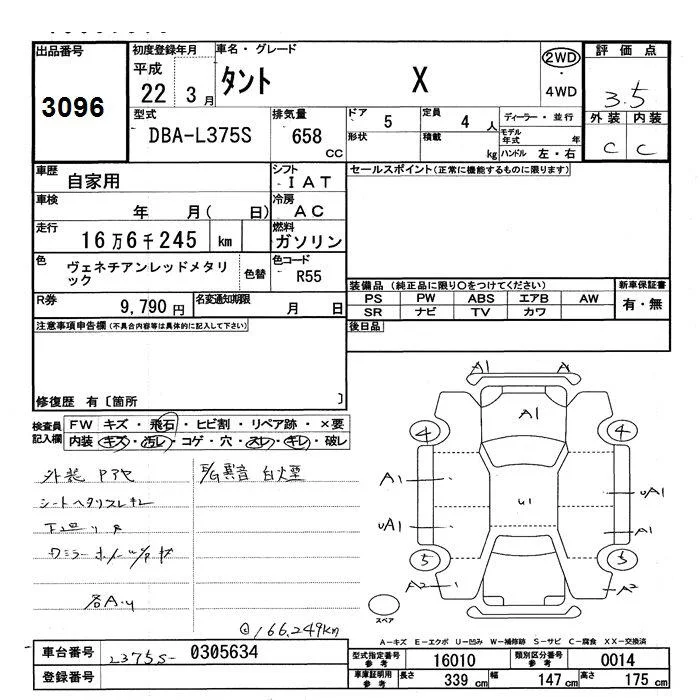 出品番号
3096
初度登録年月
平成
22 3月
車名・グレード
タント X
2WD
・
4WD
評価点
3.5
外装 内装
C C
型式
DBA-L375S
排気量
658
CC
ドア
5
定員
4 人
ディーラー・並行
モデル年式 年
形状
積載
kg
ハンドル 左・右
車歴
自家用
シフト
IAT
セールスポイント(正常に機能するものに限ります)
車検
年 月( 日)
冷房
AC
走行
16万6千245 km
燃料
ガソリン
色
ヴェネチアンレッドメタリ
ック
色替
色コード
R55
装備品(純正品に限り○をつけてください)
新車保証書
PS PW ABS エアB AW
有・無
SR ナビ TV カワ
R券
9,790円
名変通知期限
月 日
後日品
注意事項申告欄(不具合内容等は具体的に記入して下さい)
修復歴 有〔箇所 〕
検査員
記入欄
FW キズ・飛石・ヒビ割・リペア跡・×要
内装 キズ・汚レ・コゲ・穴・スレ・キレ・破レ
外装 Pアセ
E/G異音 白煙
シートヘタリスレキレ
各A.U
166,249km
A1 A
A1
4 4
A1
U1
uA1
uA1
A1
5 5
A2 A2
スペア
A-キズ E-エクボ U-凹み W-補修跡 S-サビ C-腐食 XX-交換済
車台番号
L375S- 0305634
登録番号
型式指定番号
参考
16010
類別区分番号
参考
0014
車庫証明用
参考
長さ
339 cm
幅
147 cm
高さ
175 cm